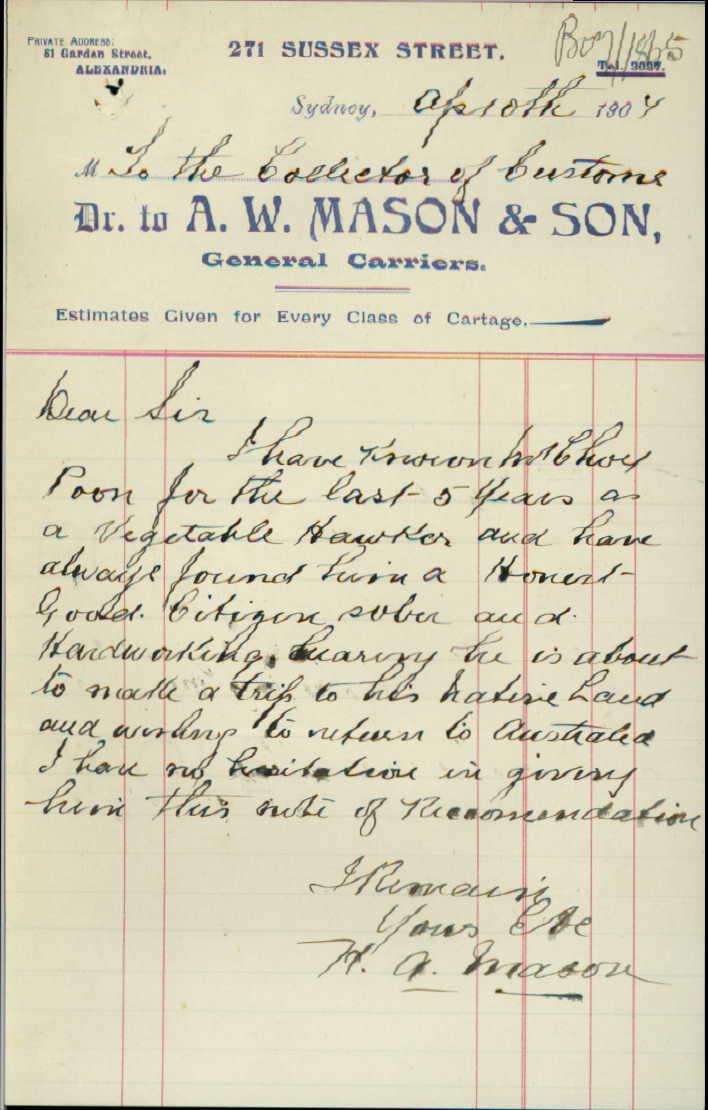 PRIVATE ADDRESS:
61 Garden Street,
ALEXANDRIA.
271 SUSSEX STREET.
Tel. 3037.
Sydney, Ap 10th 1904
M To the Collector of Customs
Dr. to A. W. MASON & SON,
General Carriers.
Estimates Given for Every Class of Cartage.
Dear Sir
I have Known Mr Choy
Poon for the last 5 Years as
a Vegetable Hawker and have
always found him a Honest
Good Citizen sober and
Hardworking, hearing he is about
to make a trip to his Native Land
and wishing to return to Australia
I have no hesitation in giving
him this note of Recomendation
I Remain
Yours Etc
A. Mason